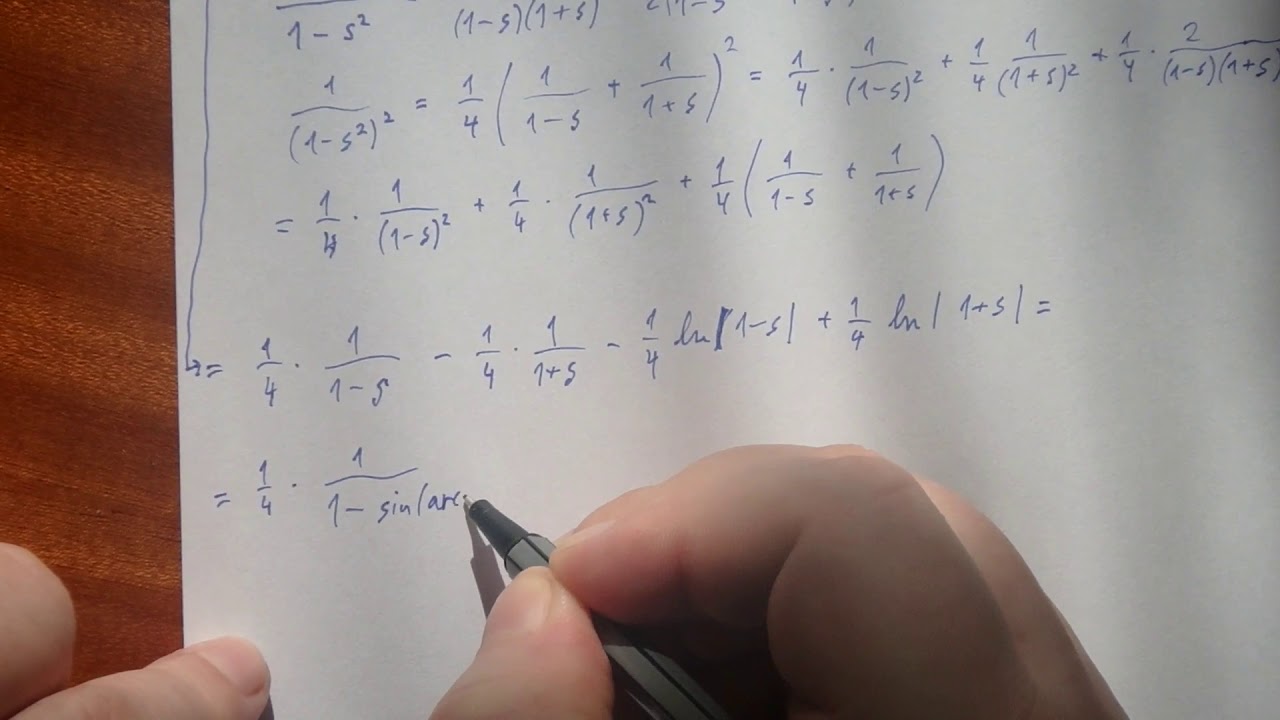 1/(1-s²) 1/((1-s)(1+s))
1/(1-s²)² = 1/4 (1/(1-s) + 1/(1+s))² = 1/4 · 1/(1-s)² + 1/4 1/(1+s)² + 1/4 · 2/((1-s)(1+s)
= 1/4 · 1/(1-s)² + 1/4 · 1/(1+s)² + 1/4 (1/(1-s) + 1/(1+s))
= 1/4 · 1/(1-s) - 1/4 · 1/(1+s) - 1/4 ln|1-s| + 1/4 ln|1+s| =
= 1/4 · 1/(1- sin(arc